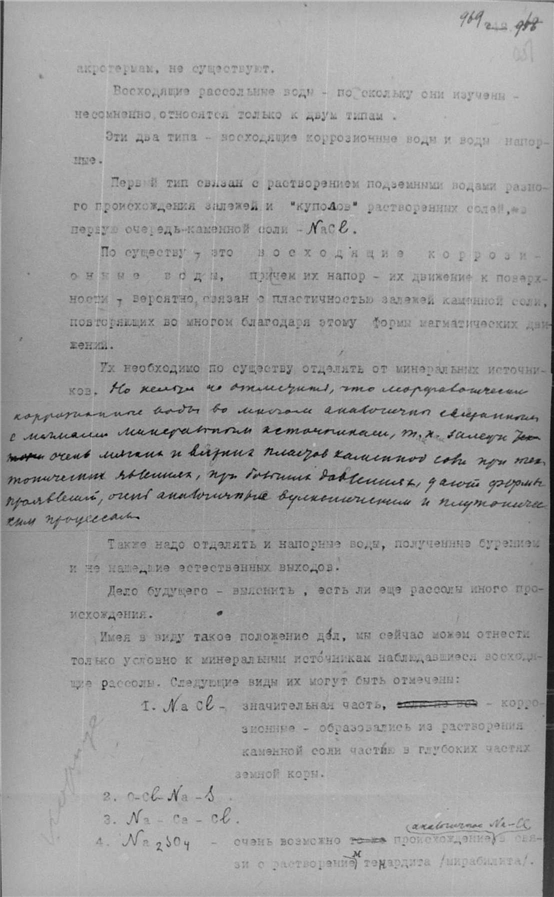 969
968
акротермам, не существуют.
Восходящие рассольные воды - поскольку они изучены -
несомненно относятся только к двум типам.
Эти два типа - восходящие коррозионные воды и воды напор-
ные.
Первый тип связан с растворением подземными водами разно-
го происхождения залежей и "куполов" растворенных солей, в
первую очередь каменной соли - NaCl.
По существу, это восходящие коррози-
онные воды, причем их напор - их движение к поверх-
ности, вероятно, связан с пластичностью залежей каменной соли,
повторяющих во многом благодаря этому формы магматических дви-
жений.
Их необходимо по существу отделять от минеральных источни-
ков. Но нельзя не отметить, что морфологически
коррозионные воды во многом аналогичны связанным
с магмами минеральным источникам, т.к. залежи
очень мягких и вязких пластов каменной соли при тек-
тонических явлениях, при больших давлениях, дают формы
проявлений, очень аналогичные вулканическим и плутоничес-
ким процессам.
Также надо отделять и напорные воды, полученные бурением
и не нашедшие естественных выходов.
Дело будущего - выяснить, есть ли еще рассолы иного про-
исхождения.
Имея в виду такое положение дел, мы сейчас можем отнести
только условно к минеральным источникам наблюдавшиеся восходя-
щие рассолы. Следующие виды их могут быть отмечены:
1. NaCl - значительная часть, - корро-
зионные - образовались из растворения
каменной соли частью в глубоких частях
земной коры.
2. O-Cl-Na-S.
3. Na-Ca-Cl.
аналогичное Na-Cl
4. Na2SO4 - очень возможно происхождение в свя-
зи с растворением тенардита /мирабилита/.